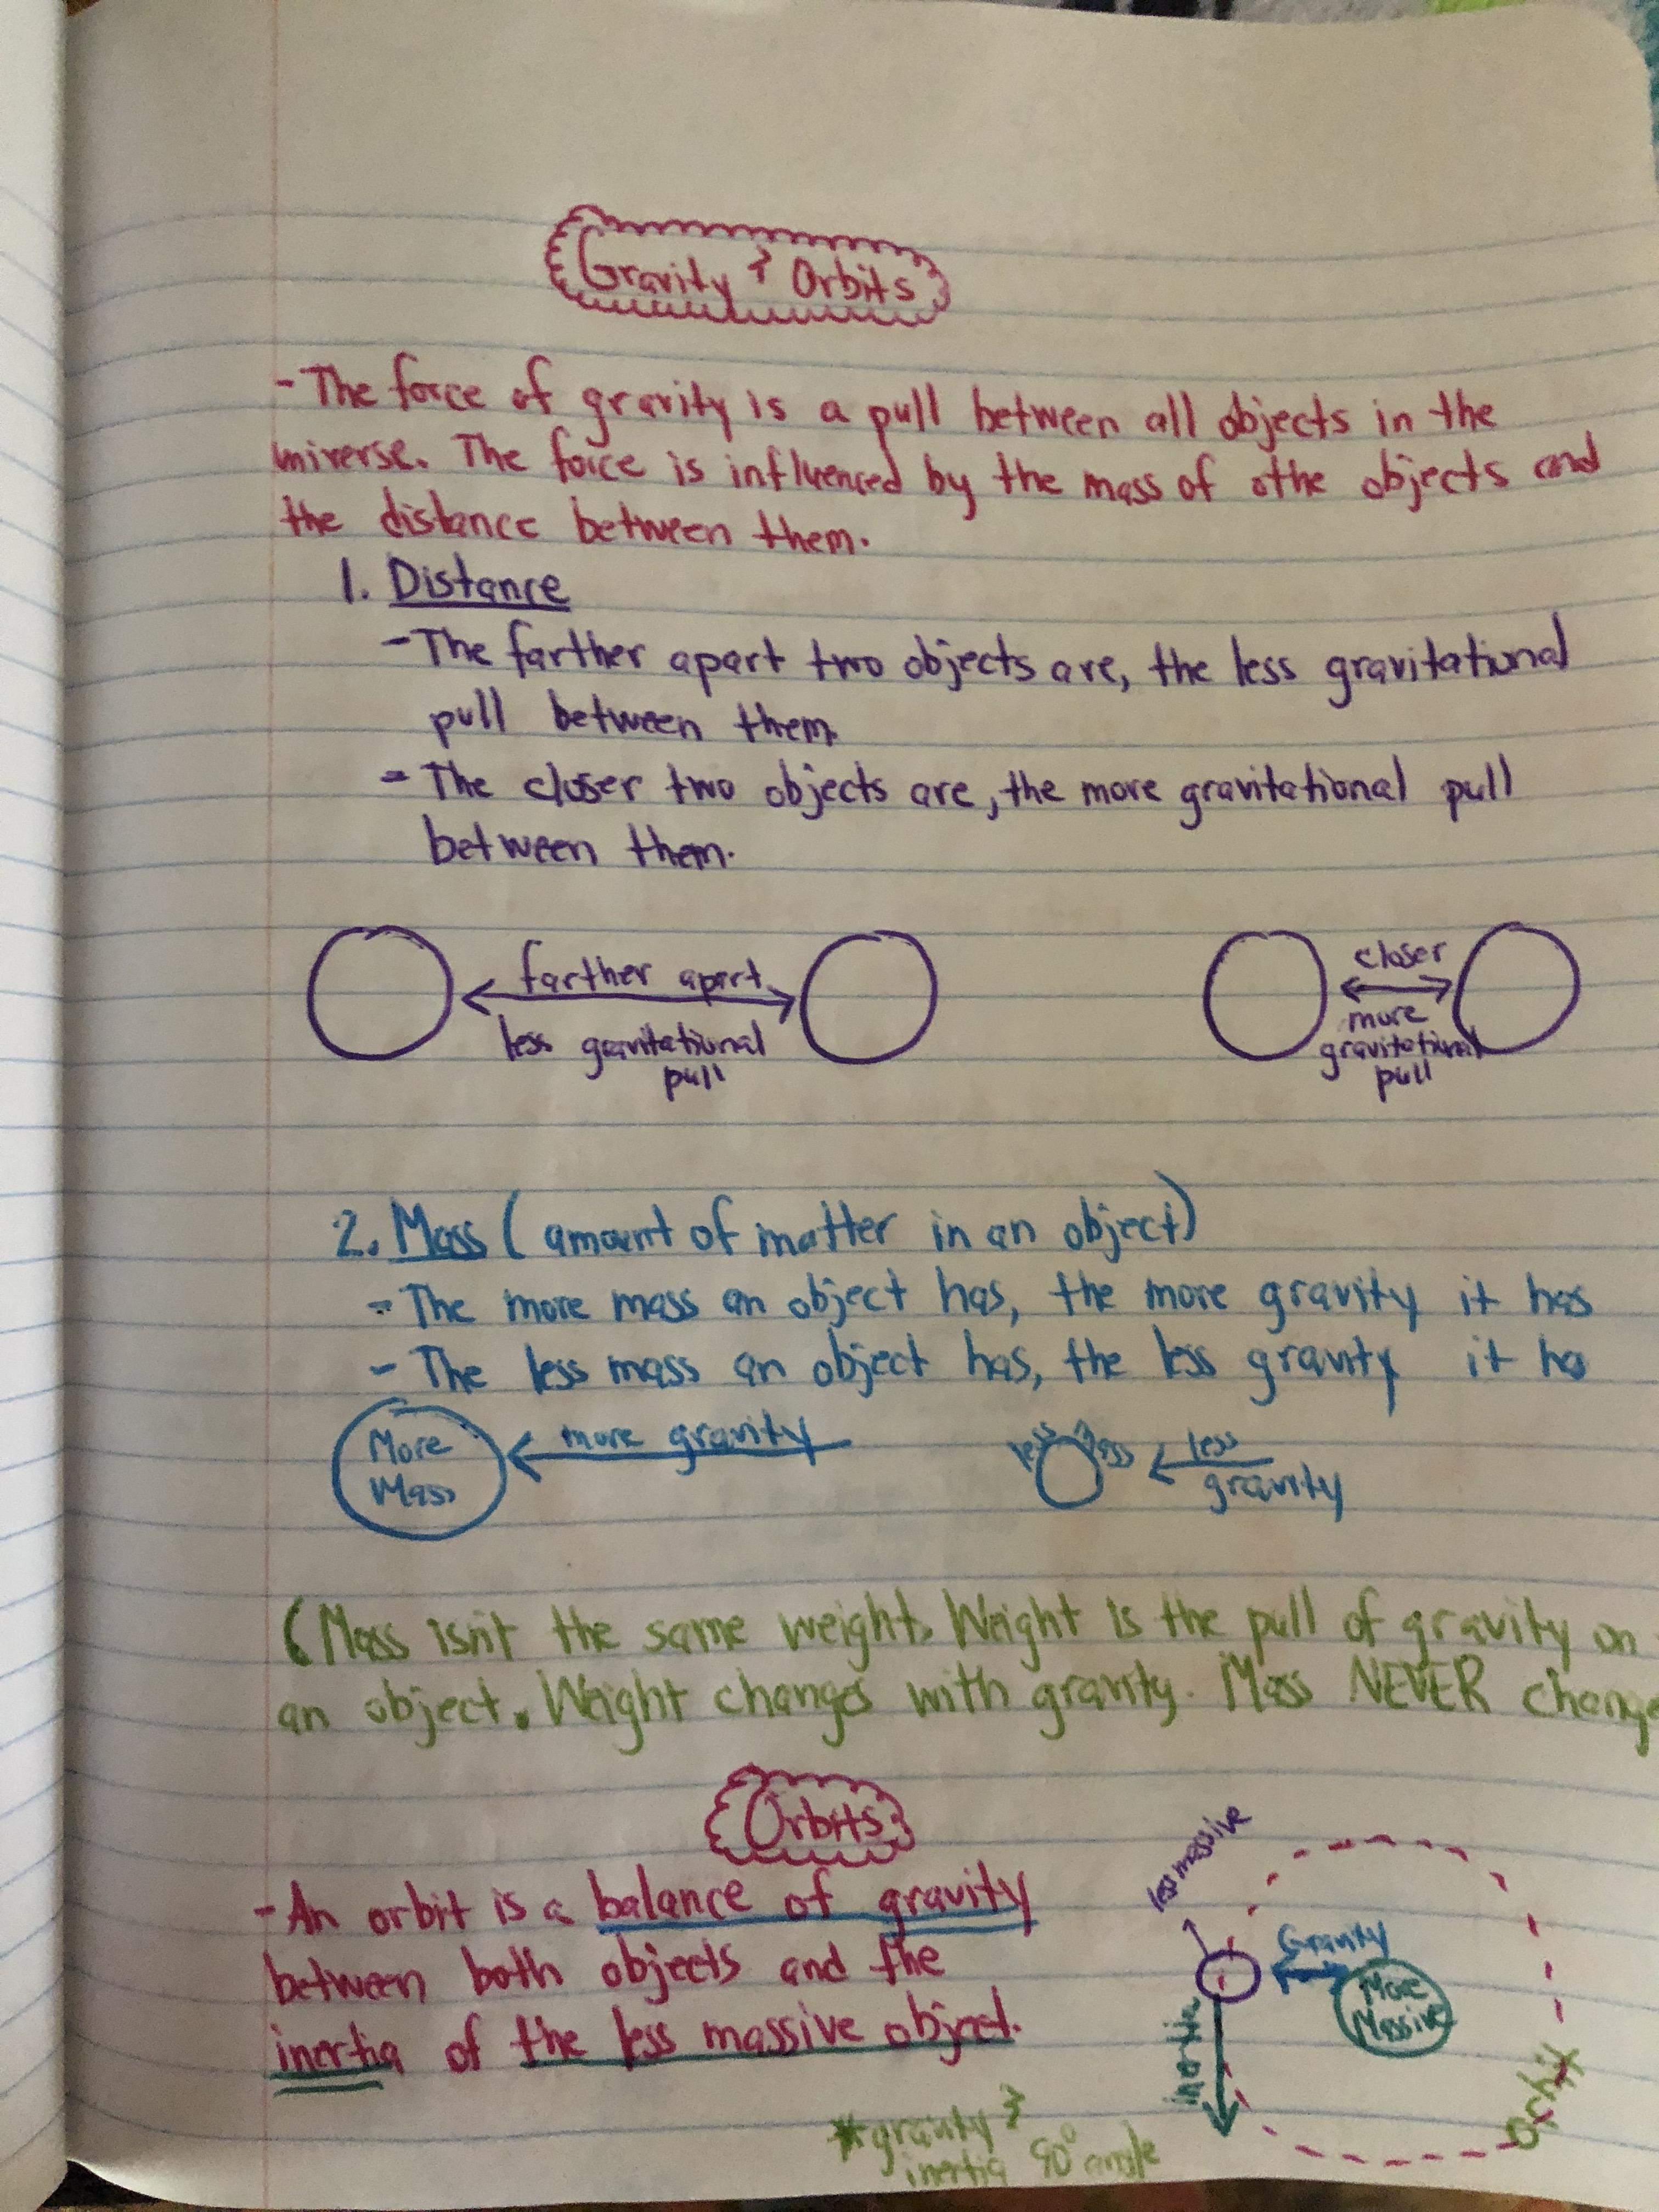 Gravity & Orbits
- The force of gravity is a pull between all objects in the
universe. The force is influenced by the mass of othe objects and
the distance between them.
1. Distance
- The farther apart two objects are, the less gravitational
pull between them.
- The closer two objects are, the more gravitational pull
between them.
farther apart
less gravitational
pull
closer
more
gravitational
pull
2. Mass (amount of matter in an object)
- The more mass an object has, the more gravity it has
- The less mass an object has, the less gravity it ha
More
Mass
more gravity
less mass
less
gravity
(Mass isn't the same weight. Weight is the pull of gravity on
an object. Weight changes with gravity. Mass NEVER change
Orbits
- An orbit is a balance of gravity
between both objects and the
inertia of the less massive object.
less massive
Gravity
More
Massive
inertia
orbit
*gravity &
inertia 90° angle